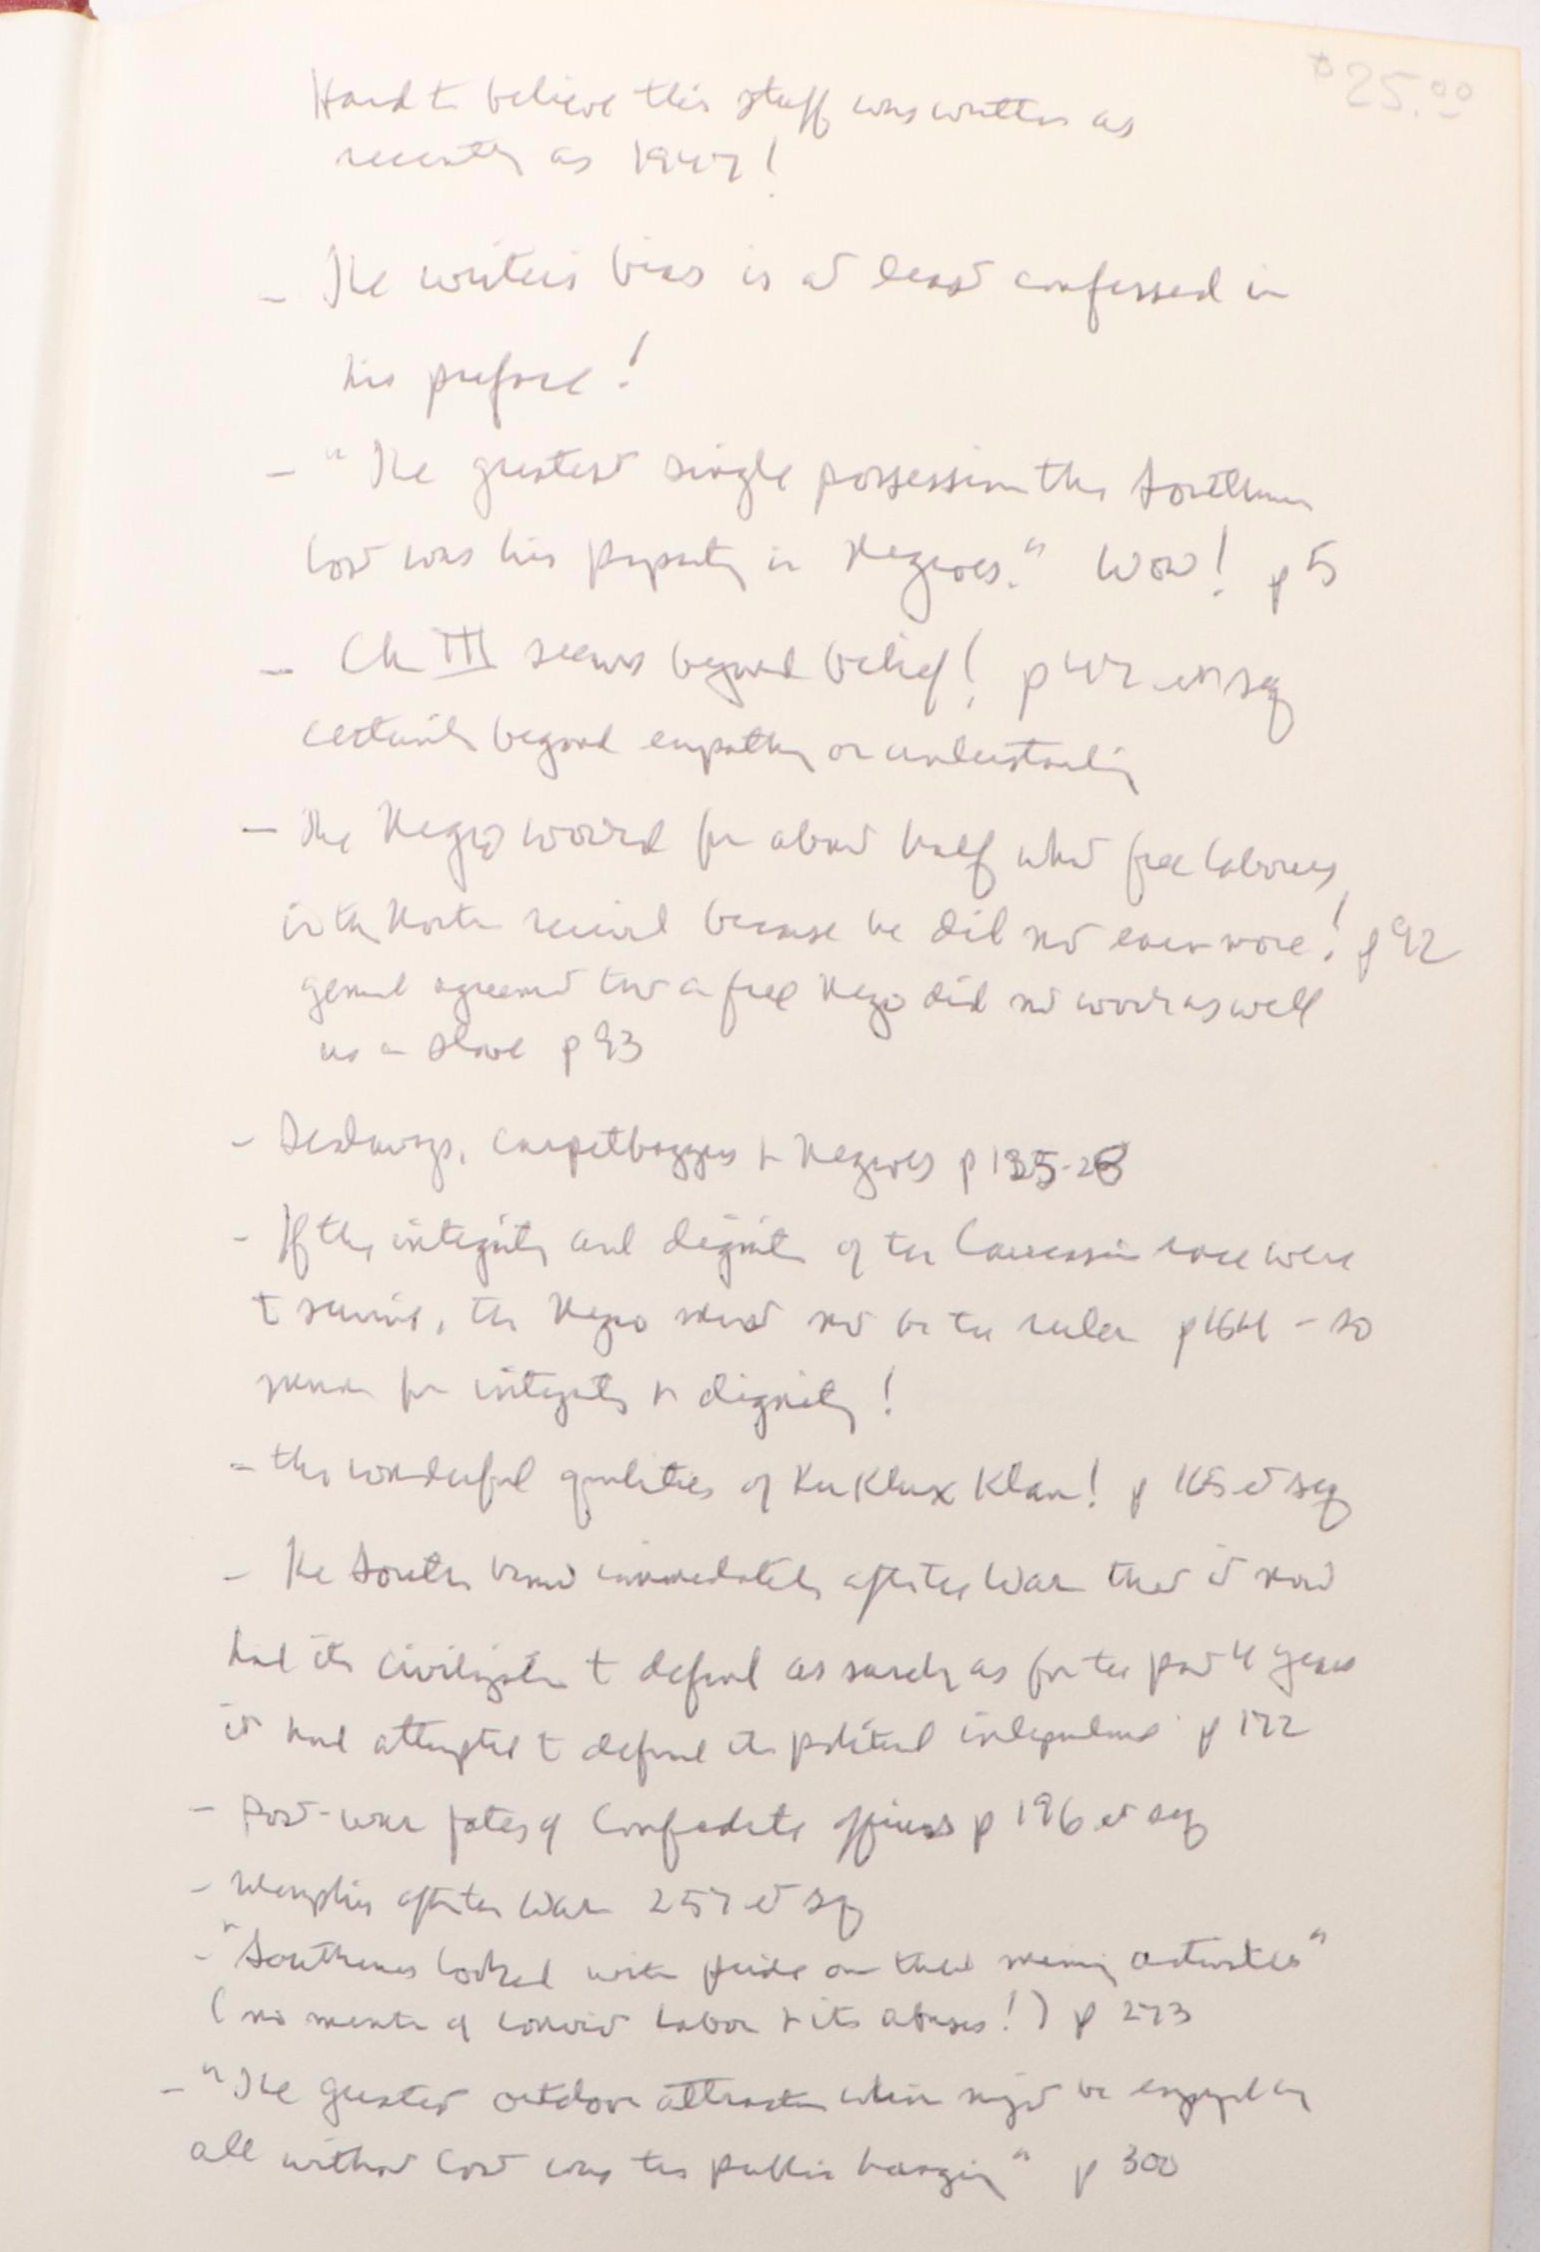 $25.00
Hard to believe this stuff was written as
recently as 1947!
- The writer's bias is at least confessed in
his preface!
- "The greatest single possession the Southerner
lost was his property in Negroes." Wow! p 5
- Ch III seems beyond belief! p 42 et seq
certainly beyond empathy or understanding
- The Negro worked for about half what free laborers
in the North received because he did not earn more! p 92
general agreement that a free Negro did not work as well
as a slave p 93
- Scalawags, carpetbaggers & Negroes p 125-28
- If the integrity and dignity of the Caucasian race were
to survive, the Negro must not be the ruler p 164 - so
much for integrity & dignity!
- the wonderful qualities of Ku Klux Klan! p 165 et seq
- The South found immediately after the War that it now
had its civilization to defend as surely as for the past 4 years
it had attempted to defend its political independence p 172
- Post-war fates of Confederate officers p 196 et seq
- Memphis after the War 257 et sq
- "Southerners looked with pride on their mining activities"
(no mention of convict labor & its abuses!) p 273
- "The greatest outdoor attraction which might be enjoyed by
all without cost was the public hanging" p 300